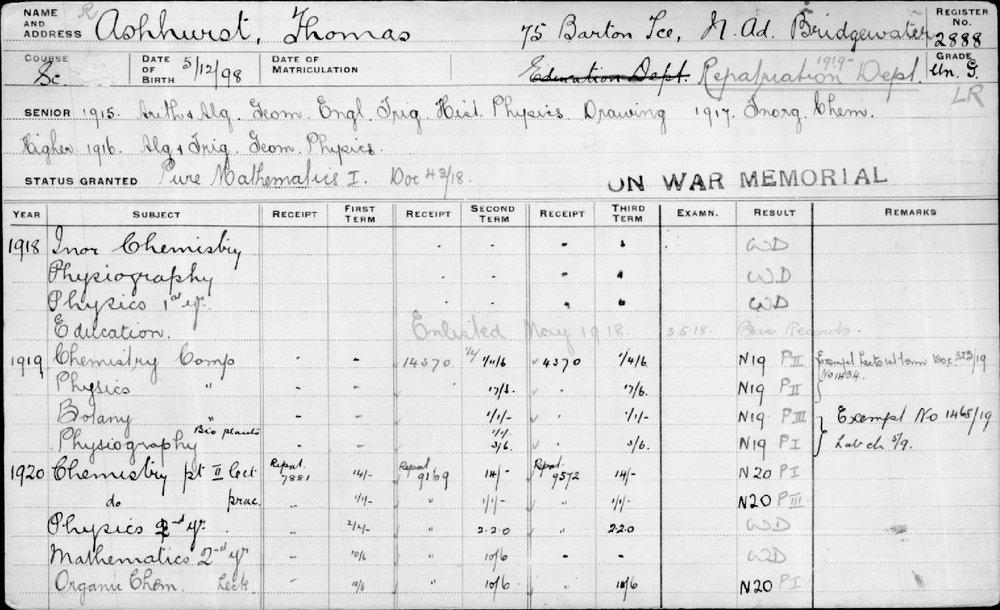 NAME AND ADDRESS R Ashhurst, Thomas 75 Barton Tce, N. Ad. Bridgewater REGISTER No. 2888
COURSE Sc. DATE OF BIRTH 5/12/98 DATE OF MATRICULATION Education Dept. 1919- Repatriation Dept. GRADE Un. G.
LR
SENIOR 1915. Arith & Alg. Geom. Engl. Trig. Hist. Physics. Drawing 1917. Inorg. Chem.
Higher 1916. Alg & Trig. Geom. Physics.
STATUS GRANTED Pure Mathematics I. Doc 43/18. ON WAR MEMORIAL
YEAR SUBJECT RECEIPT FIRST TERM RECEIPT SECOND TERM RECEIPT THIRD TERM EXAMN. RESULT REMARKS
1918 Inor Chemistry - - . . - . WD
Physiography - - . . - . WD
Physics 1st yr. - - . . - . WD
Education. Enlisted May 1918. 3.5.18. Base Records.
1919 Chemistry Comp - - 14370 1/11/6 4370 1/4/6 N19 PII Exempt Lects 1st term Doc 323/19
Physics " - - 17/6 17/6 N19 PII No 1434
Botany " - - 1/1/- 1/1/- N19 PIII Exempt No 1468/19
Physiography Bio plants - - 1/1/- 3/6 3/6 N19 PI Lab ch 5/9.
1920 Chemistry pt II Lect Repat. 7881 14/- Repat 9169 14/- Repat. 9572 14/- N20 PI
do prac. - 1/1/- " 1/1/- " 1/1/- N20 PIII
Physics 2nd yr. - 2/2/- " 2.2.0 " 2.2.0 WD
Mathematics 2nd yr - 10/6 " 10/6 - - WD
Organic Chem. Lects. - 10/6 " 10/6 " 10/6 N20 PI